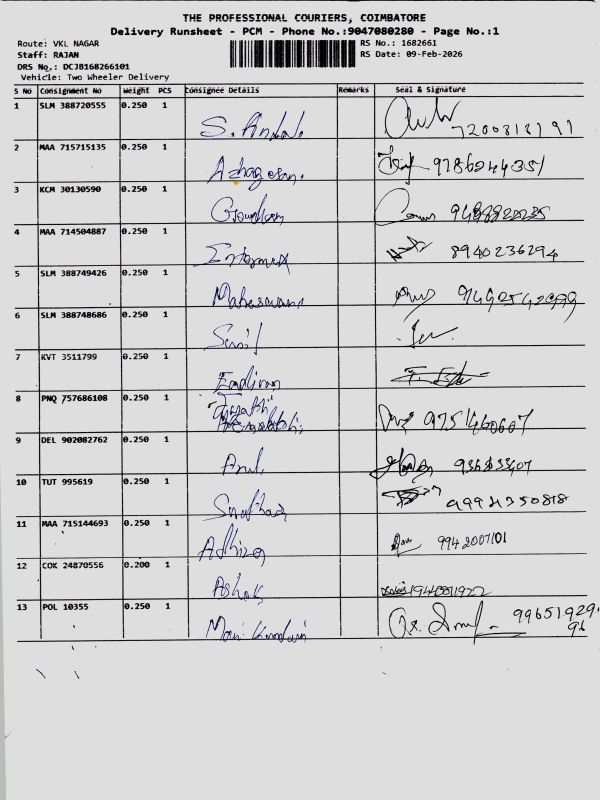 THE PROFESSIONAL COURIERS, COIMBATORE
Delivery Runsheet - PCM - Phone No.:9047080280 - Page No.:1
Route: VKL NAGAR
RS No.: 1682661
Staff: RAJAN
RS Date: 09-Feb-2026
DRS No.: DCJB168266101
Vehicle: Two Wheeler Delivery
S No Consignment No Weight PCS Consignee Details Remarks Seal & Signature
1 SLM 388720555 0.250 1
2 MAA 715715135 0.250 1
Azhagesan. 9786244351
3 KCM 30130590 0.250 1
Gowtham
4 MAA 714504887 0.250 1
8940236294
5 SLM 388749426 0.250 1
Maheswari
6 SLM 388748686 0.250 1
Sunil
7 KVT 3511799 0.250 1
8 PNQ 757686108 0.250 1
9751460607
9 DEL 902082762 0.250 1
Arul
10 TUT 995619 0.250 1
11 MAA 715144693 0.250 1
9942007101
12 COK 24870556 0.200 1
Ashok
13 POL 10355 0.250 1
99651929
96